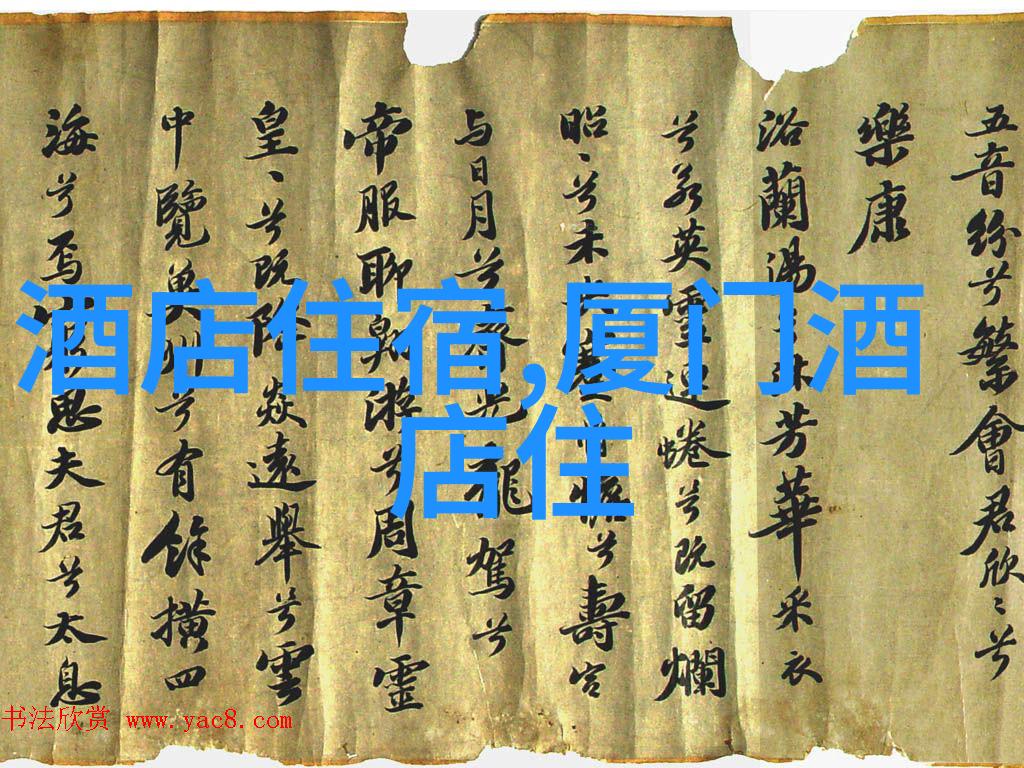 五音紛兮繁會君欣〻兮
樂康
浴蘭湯沐芳華采衣
兮若英靈連蜷兮既留爛
昭〻兮未央兮壽宮
与日月兮光龍駕兮
帝服聊翱遊兮周章靈
皇〻兮既降焱遠舉兮雲
中覽冀州兮有餘橫四
海兮焉思夫君兮太息
酒店住宿,厦门酒
店住
书法欣赏 www.yac8.com